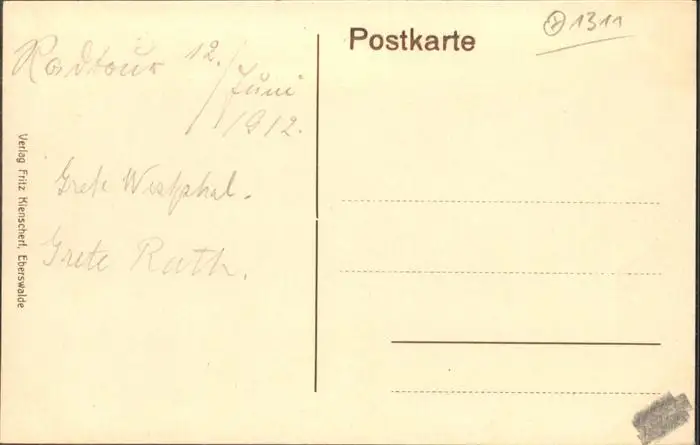 Radtour 12./
Juni
1912.
Grete Westphal.
Grete Rath.
Verlag Fritz Kienscherf, Eberswalde
Postkarte
1311